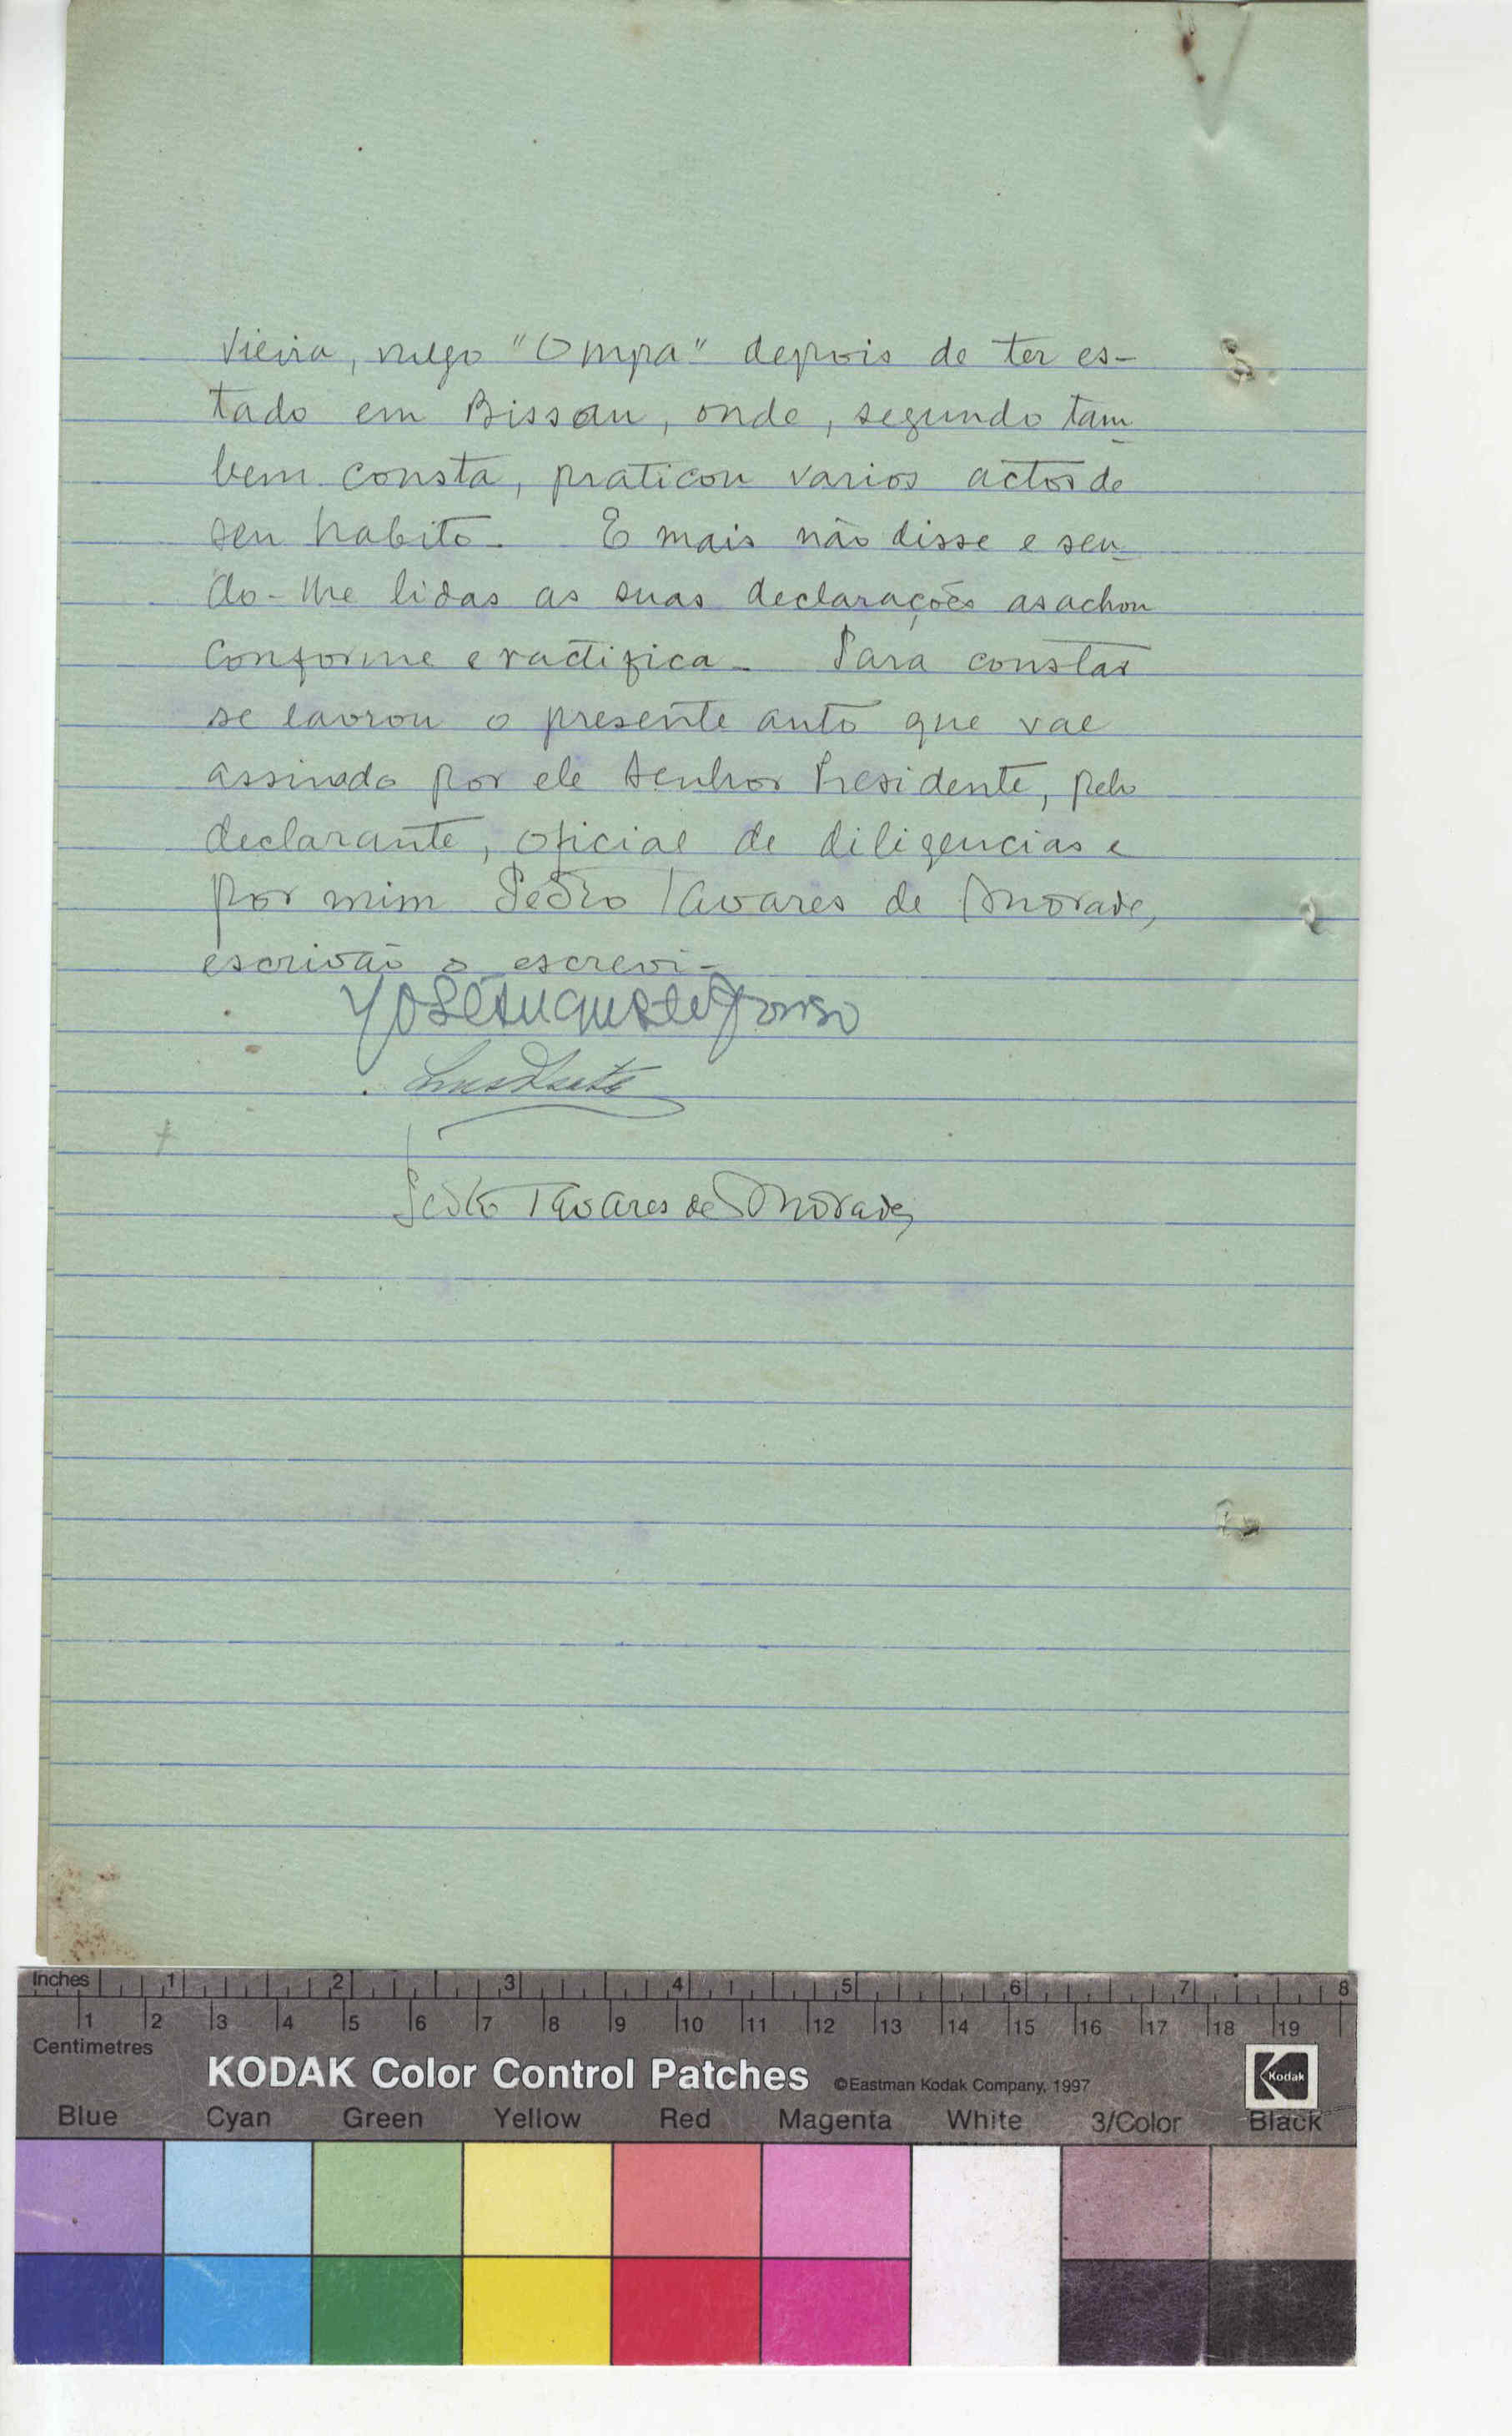 Vieira, vulgo "Ompa" depois de ter es-
tado em Bissau, onde, segundo tam
bem consta, praticou varios actos de
seu habito. E mais não disse e sen
do-lhe lidas as suas declarações as achou
conforme e ractifica. Para constar
se lavrou o presente auto que vae
assinado por ele Senhor Presidente, pelo
declarante, oficial de diligencias e
por mim Pedro Tavares de Andrade,
escrivão o escrevi-
José Augusto Afonso
Pedro Tavares de Andrade,
Inches 1 2 3 4 5 6 7 8
1 2 3 4 5 6 7 8 9 10 11 12 13 14 15 16 17 18 19
Centimetres
KODAK Color Control Patches ©Eastman Kodak Company, 1997 Kodak
Blue Cyan Green Yellow Red Magenta White 3/Color Black